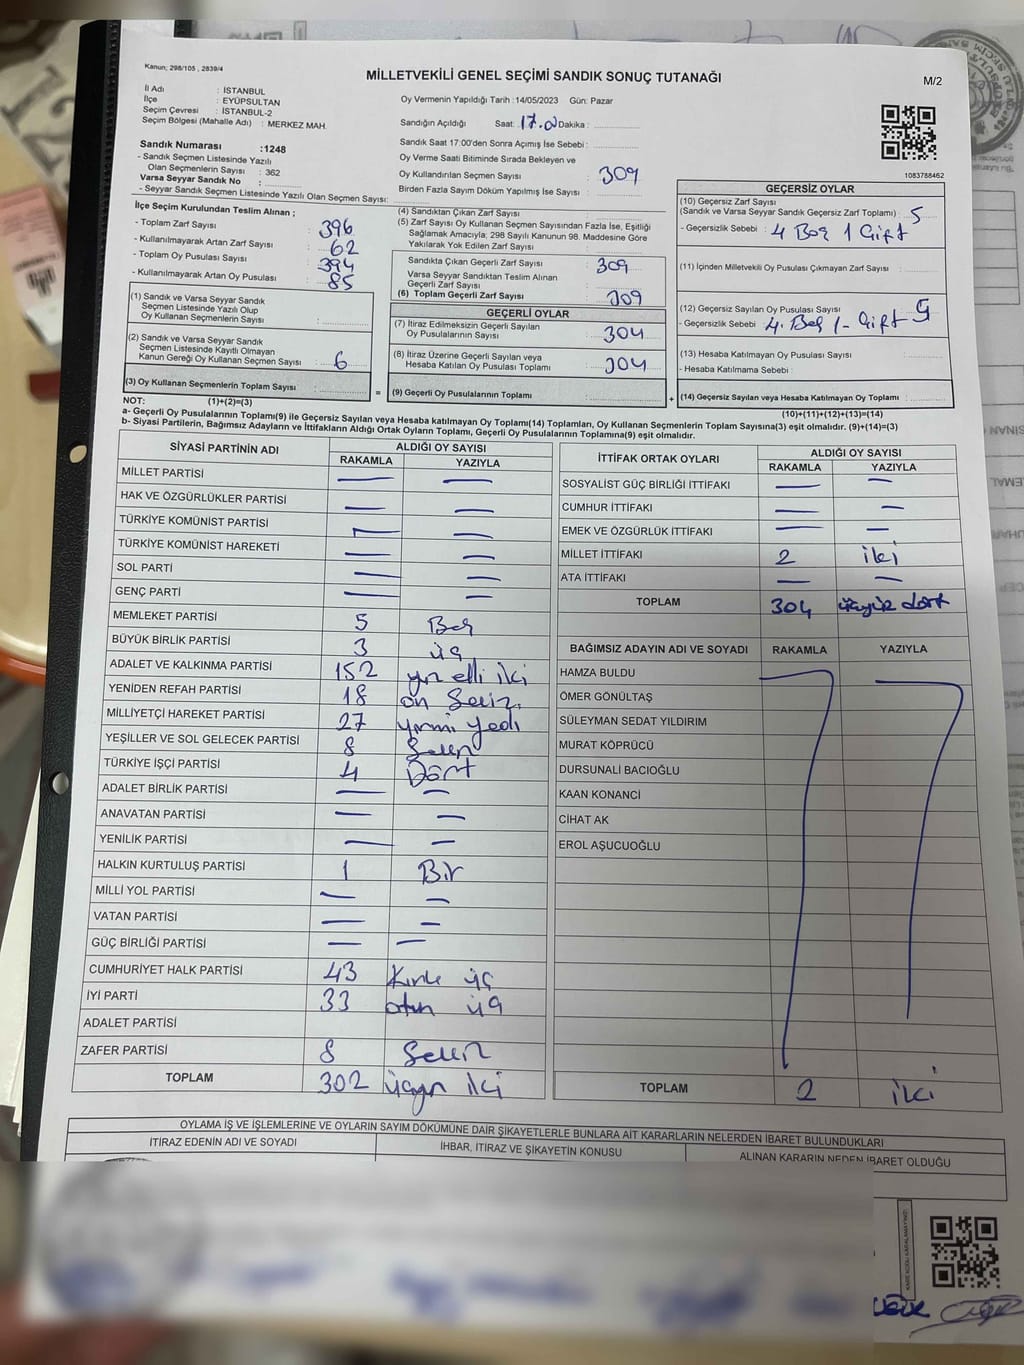 Kanun; 298/105 , 2839/4
MİLLETVEKİLİ GENEL SEÇİMİ SANDIK SONUÇ TUTANAĞI
M/2
İl Adı : İSTANBUL
İlçe : EYÜPSULTAN
Seçim Çevresi : İSTANBUL-2
Seçim Bölgesi (Mahalle Adı) : MERKEZ MAH.
Oy Vermenin Yapıldığı Tarih :14/05/2023 Gün: Pazar
Sandığın Açıldığı Saat: 17.0 Dakika :
Sandık Saat 17:00'den Sonra Açılmış İse Sebebi :
Oy Verme Saati Bitiminde Sırada Bekleyen ve
Oy Kullandırılan Seçmen Sayısı : 309
Birden Fazla Sayım Döküm Yapılmış İse Sayısı :
1083788462
Sandık Numarası :1248
- Sandık Seçmen Listesinde Yazılı
Olan Seçmenlerin Sayısı : 362
Varsa Seyyar Sandık No :
- Seyyar Sandık Seçmen Listesinde Yazılı Olan Seçmen Sayısı:
İlçe Seçim Kurulundan Teslim Alınan ;
- Toplam Zarf Sayısı : 396
- Kullanılmayarak Artan Zarf Sayısı : 62
- Toplam Oy Pusulası Sayısı : 394
- Kullanılmayarak Artan Oy Pusulası : 85
(1) Sandık ve Varsa Seyyar Sandık
Seçmen Listesinde Yazılı Olup
Oy Kullanan Seçmenlerin Sayısı :
(2) Sandık ve Varsa Seyyar Sandık
Seçmen Listesinde Kayıtlı Olmayan
Kanun Gereği Oy Kullanan Seçmen Sayısı : 6
(3) Oy Kullanan Seçmenlerin Toplam Sayısı :
=
(4) Sandıktan Çıkan Zarf Sayısı :
(5) Zarf Sayısı Oy Kullanan Seçmen Sayısından Fazla İse, Eşitliği
Sağlamak Amacıyla; 298 Sayılı Kanunun 98. Maddesine Göre
Yakılarak Yok Edilen Zarf Sayısı :
Sandıkta Çıkan Geçerli Zarf Sayısı : 309
Varsa Seyyar Sandıktan Teslim Alınan
Geçerli Zarf Sayısı :
(6) Toplam Geçerli Zarf Sayısı : 309
GEÇERLİ OYLAR
(7) İtiraz Edilmeksizin Geçerli Sayılan
Oy Pusulalarının Sayısı : 304
(8) İtiraz Üzerine Geçerli Sayılan veya
Hesaba Katılan Oy Pusulası Toplamı : 304
(9) Geçerli Oy Pusulalarının Toplamı :
+
GEÇERSİZ OYLAR
(10) Geçersiz Zarf Sayısı
(Sandık ve Varsa Seyyar Sandık Geçersiz Zarf Toplamı) : 5
- Geçersizlik Sebebi : 4 Boş 1 Çift
(11) İçinden Milletvekili Oy Pusulası Çıkmayan Zarf Sayısı :
(12) Geçersiz Sayılan Oy Pusulası Sayısı : 5
- Geçersizlik Sebebi : 4. Boş 1 - Çift
(13) Hesaba Katılmayan Oy Pusulası Sayısı :
- Hesaba Katılmama Sebebi :
(14) Geçersiz Sayılan veya Hesaba Katılmayan Oy Toplamı :
NOT: (1)+(2)=(3)
(10)+(11)+(12)+(13)=(14)
a- Geçerli Oy Pusulalarının Toplamı(9) ile Geçersiz Sayılan veya Hesaba katılmayan Oy Toplamı(14) Toplamları, Oy Kullanan Seçmenlerin Toplam Sayısına(3) eşit olmalıdır. (9)+(14)=(3)
b- Siyasi Partilerin, Bağımsız Adayların ve İttifakların Aldığı Ortak Oyların Toplamı, Geçerli Oy Pusulalarının Toplamına(9) eşit olmalıdır.
SİYASİ PARTİNİN ADI ALDIĞI OY SAYISI
RAKAMLA YAZIYLA
MİLLET PARTİSİ — —
HAK VE ÖZGÜRLÜKLER PARTİSİ — —
TÜRKİYE KOMÜNİST PARTİSİ — —
TÜRKİYE KOMÜNİST HAREKETİ — —
SOL PARTİ — —
GENÇ PARTİ — —
MEMLEKET PARTİSİ 5 Beş
BÜYÜK BİRLİK PARTİSİ 3 üç
ADALET VE KALKINMA PARTİSİ 152 yüz elli iki
YENİDEN REFAH PARTİSİ 18 on Sekiz
MİLLİYETÇİ HAREKET PARTİSİ 27 yirmi yedi
YEŞİLLER VE SOL GELECEK PARTİSİ 8 Sekiz
TÜRKİYE İŞÇİ PARTİSİ 4 Dört
ADALET BİRLİK PARTİSİ — —
ANAVATAN PARTİSİ — —
YENİLİK PARTİSİ — —
HALKIN KURTULUŞ PARTİSİ 1 Bir
MİLLİ YOL PARTİSİ — —
VATAN PARTİSİ — —
GÜÇ BİRLİĞİ PARTİSİ — —
CUMHURİYET HALK PARTİSİ 43 Kırk üç
İYİ PARTİ 33 otuz üç
ADALET PARTİSİ
ZAFER PARTİSİ 8 Sekiz
TOPLAM 302 üçyüz iki
İTTİFAK ORTAK OYLARI ALDIĞI OY SAYISI
RAKAMLA YAZIYLA
SOSYALİST GÜÇ BİRLİĞİ İTTİFAKI — —
CUMHUR İTTİFAKI — —
EMEK VE ÖZGÜRLÜK İTTİFAKI — —
MİLLET İTTİFAKI 2 iki
ATA İTTİFAKI — —
TOPLAM 304 üçyüz dört
BAĞIMSIZ ADAYIN ADI VE SOYADI RAKAMLA YAZIYLA
HAMZA BULDU
ÖMER GÖNÜLTAŞ
SÜLEYMAN SEDAT YILDIRIM
MURAT KÖPRÜCÜ
DURSUNALİ BACIOĞLU
KAAN KONANCİ
CİHAT AK
EROL AŞUCUOĞLU
TOPLAM 2 iki
OYLAMA İŞ VE İŞLEMLERİNE VE OYLARIN SAYIM DÖKÜMÜNE DAİR ŞİKAYETLERLE BUNLARA AİT KARARLARIN NELERDEN İBARET BULUNDUKLARI
İTİRAZ EDENİN ADI VE SOYADI İHBAR, İTİRAZ VE ŞİKAYETİN KONUSU ALINAN KARARIN NEDEN İBARET OLDUĞU